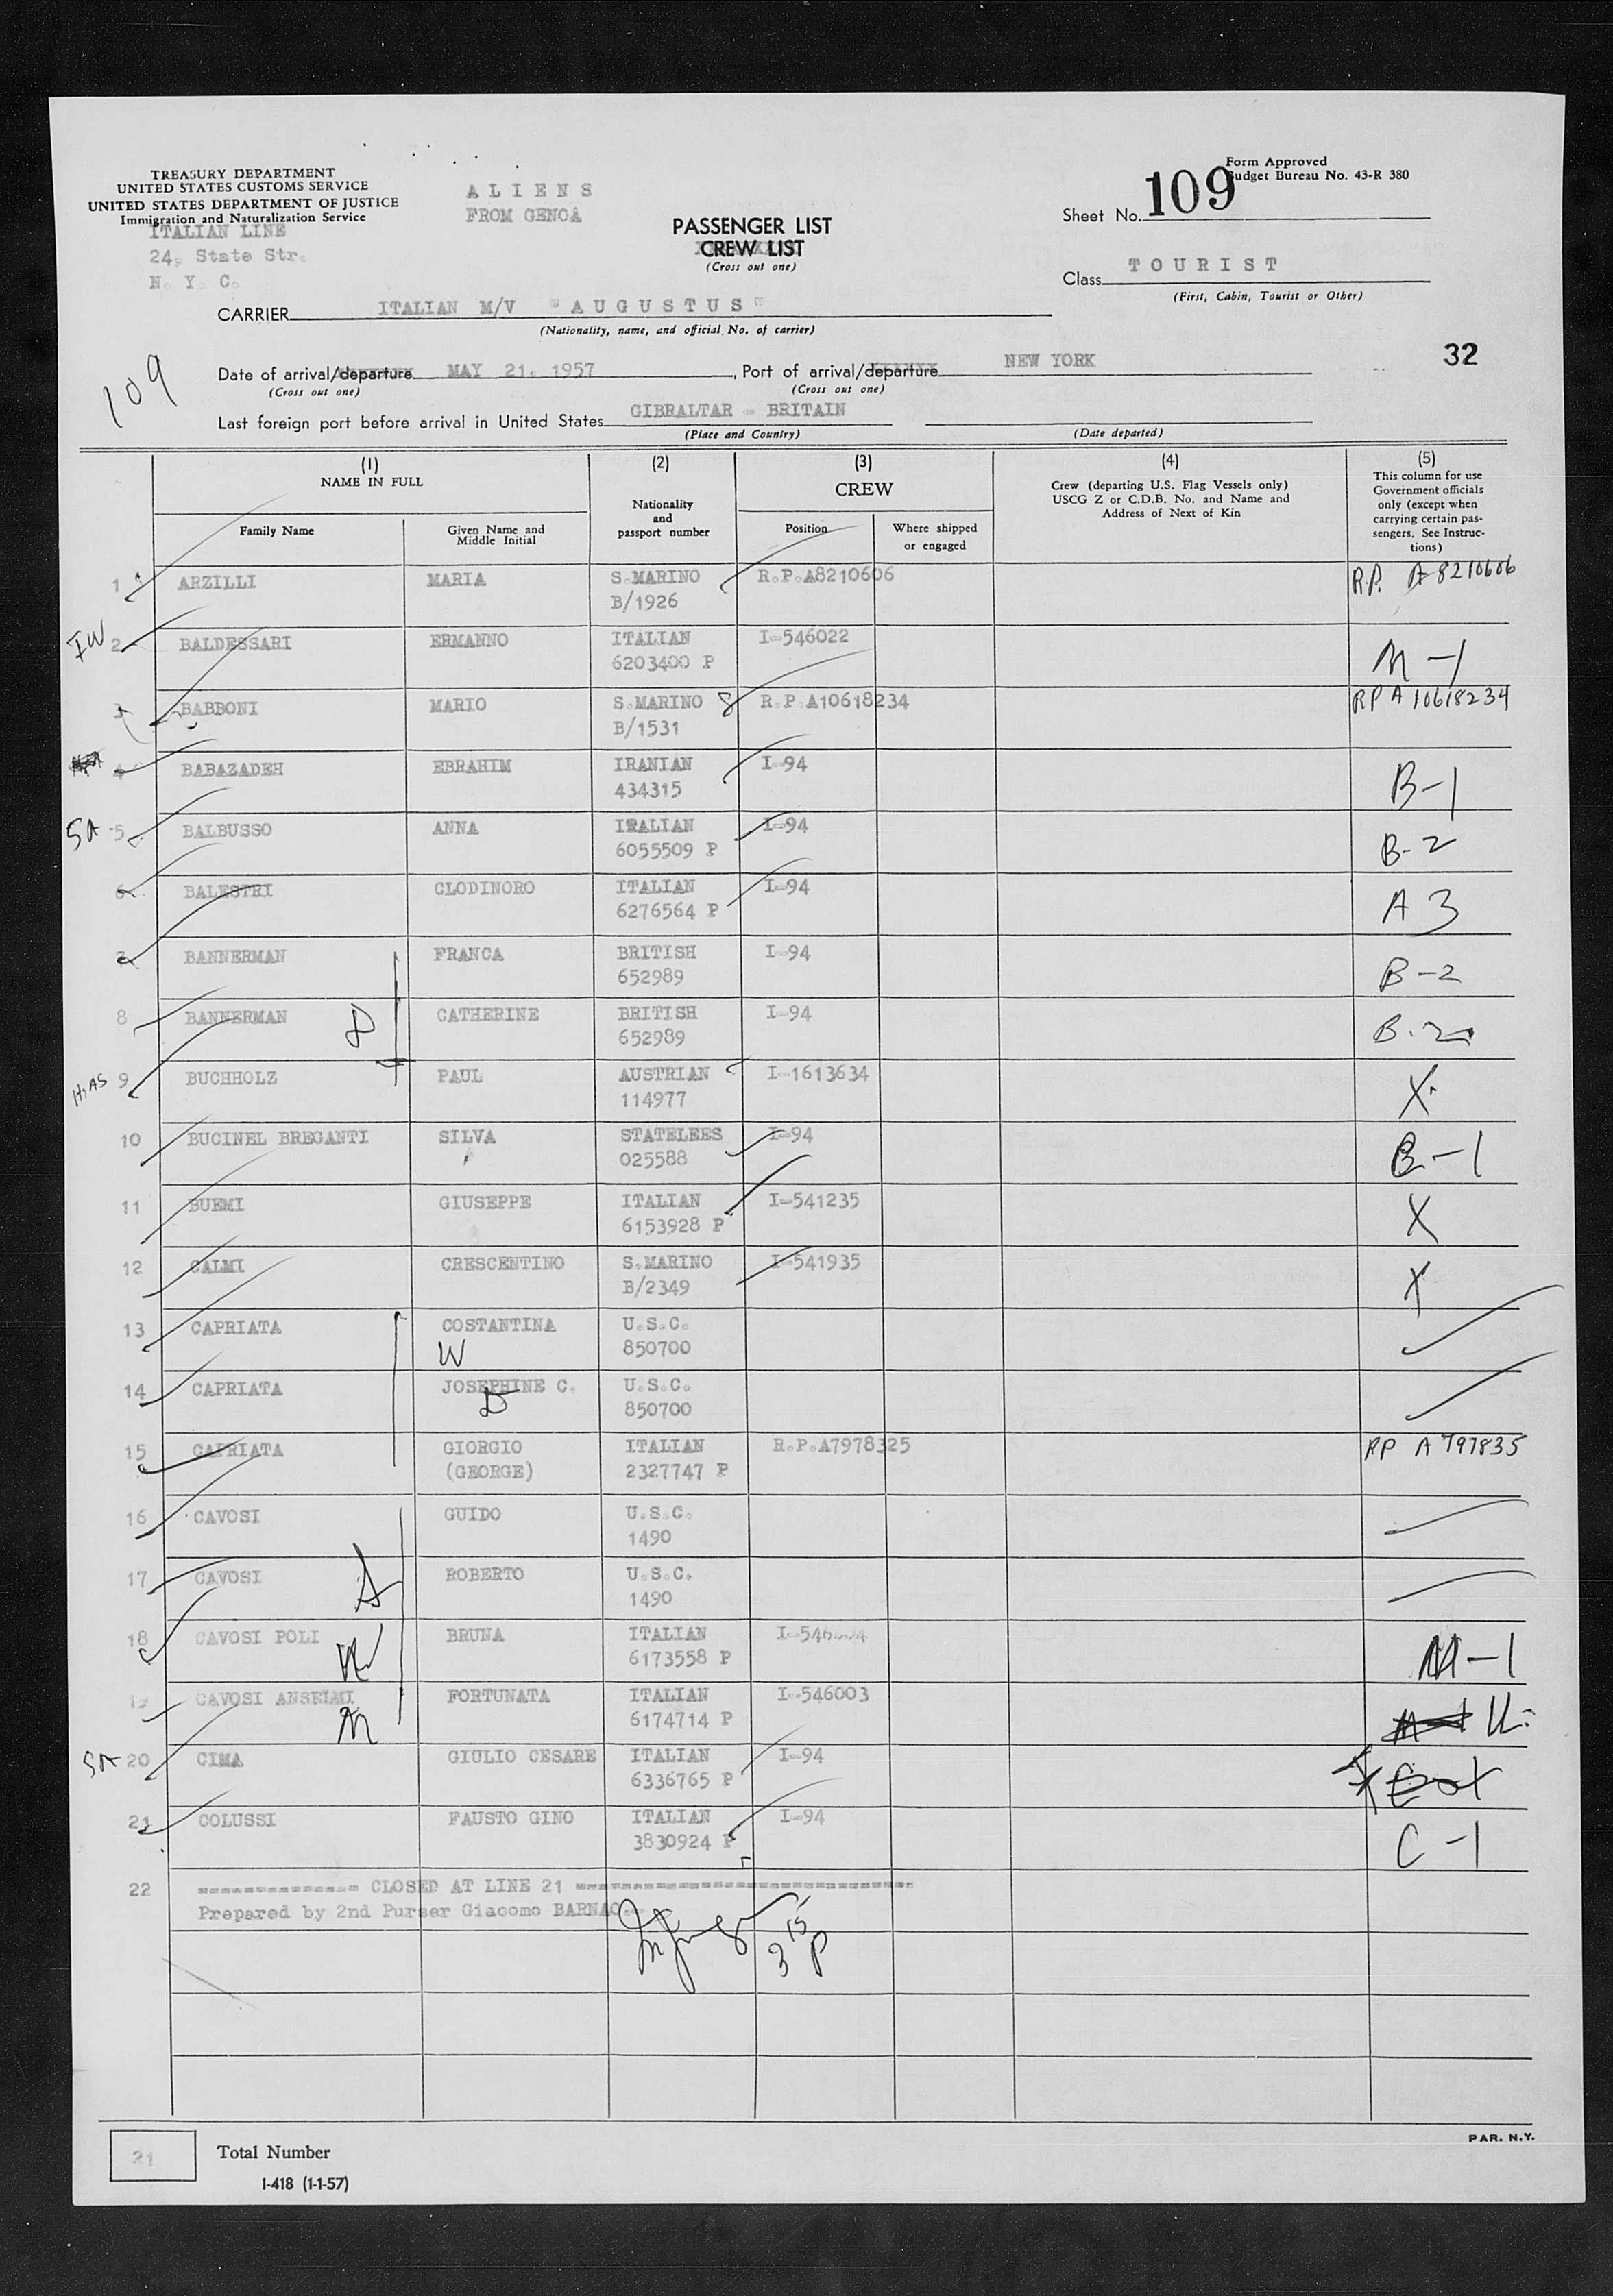 TREASURY DEPARTMENT
UNITED STATES CUSTOMS SERVICE
UNITED STATES DEPARTMENT OF JUSTICE
Immigration and Naturalization Service
ITALIAN LINE
24, State Str.
N. Y. C.
A L I E N S
FROM GENOA
PASSENGER LIST
CREW LIST
(Cross out one)
Form Approved
Budget Bureau No. 43-R 380
Sheet No. 109
Class T O U R I S T
(First, Cabin, Tourist or Other)
CARRIER ITALIAN M/V "A U G U S T U S"
(Nationality, name, and official No. of carrier)
32
109
Date of arrival/departure MAY 21. 1957, Port of arrival/departure NEW YORK
(Cross out one) (Cross out one)
Last foreign port before arrival in United States GIBRALTAR - BRITAIN
(Place and Country) (Date departed)
(1) NAME IN FULL
Family Name
Given Name and Middle Initial
(2)
Nationality and passport number
(3)
CREW
Position
Where shipped or engaged
(4)
Crew (departing U.S. Flag Vessels only)
USCG Z or C.D.B. No. and Name and
Address of Next of Kin
(5)
This column for use
Government officials
only (except when
carrying certain pas-
sengers. See Instruc-
tions)
1 ARZILLI MARIA S.MARINO R.P.A8210606 R.P. A 8210606
B/1926
IW 2 BALDESSARI ERMANNO ITALIAN I-546022
6203400 P M-1
3 BABBONI MARIO S.MARINO 8 R.P.A10618234 RP A 10618234
B/1531
4 BABAZADEH EBRAHIM IRANIAN I-94
434315 B-1
SA 5 BALBUSSO ANNA ITALIAN I-94
6055509 P B-2
6 BALESTRI CLODINORO ITALIAN I-94
6276564 P A 3
7 BANNERMAN FRANCA BRITISH I-94
652989 B-2
8 BANNERMAN D CATHERINE BRITISH I-94
652989 B-2
HIAS 9 BUCHHOLZ PAUL AUSTRIAN I-1613634
114977 X
10 BUCINEL BREGANTI SILVA STATELEES I-94
025588 B-1
11 BUEMI GIUSEPPE ITALIAN I-541235
6153928 P X
12 CALMI CRESCENTINO S.MARINO I-541935
B/2349 X
13 CAPRIATA COSTANTINA U.S.C.
W 850700
14 CAPRIATA JOSEPHINE C. U.S.C.
D 850700
15 CAPRIATA GIORGIO ITALIAN R.P.A7978325 RP A 797835
(GEORGE) 2327747 P
16 CAVOSI GUIDO U.S.C.
1490
17 CAVOSI ROBERTO U.S.C.
1490
18 CAVOSI POLI W BRUNA ITALIAN
6173558 P M-1
19 CAVOSI ANSELMI FORTUNATA ITALIAN I-546003
M 6174714 P
SA 20 CIMA GIULIO CESARE ITALIAN I-94
6336765 P
21 COLUSSI FAUSTO GINO ITALIAN I-94
3830924 P C-1
22 ============== CLOSED AT LINE 21 ==============================
Prepared by 2nd Purser Giacomo BARNAO.-
3 15 P
21
Total Number
I-418 (1-1-57)
PAR. N.Y.